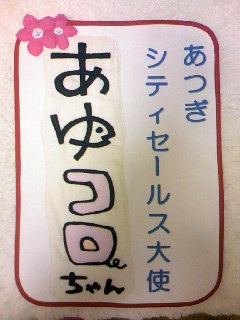 あつぎ
シティセールス大使
あゆコロ
ちゃん